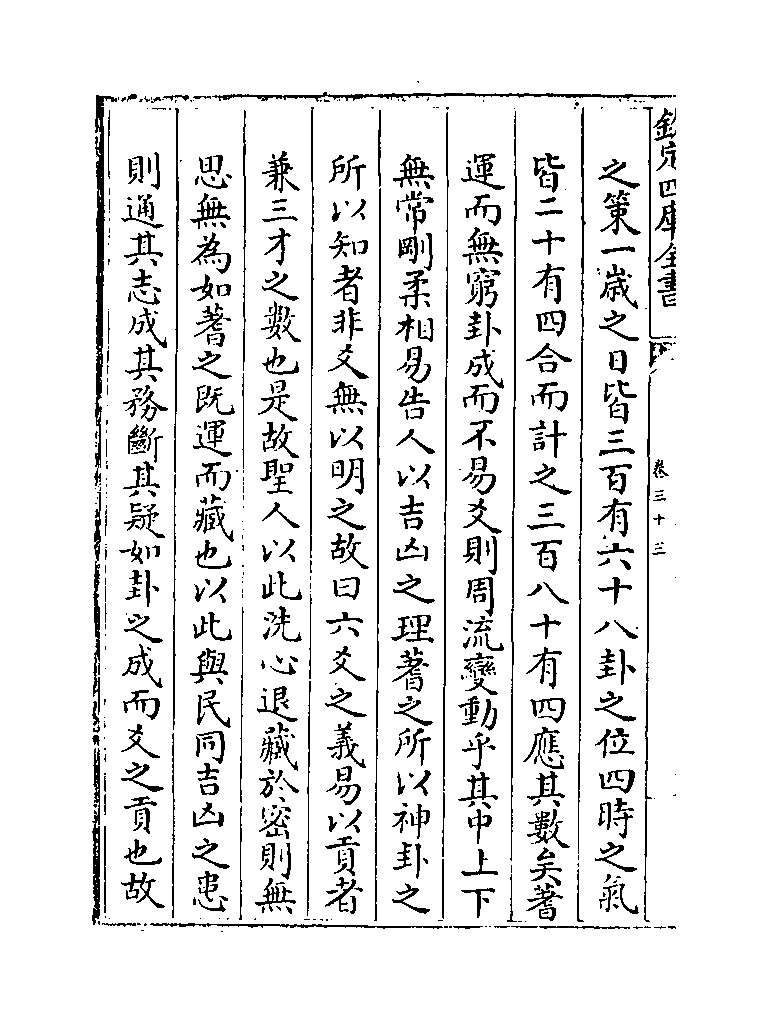 欽定四庫全書
卷三十三
之策一歲之日皆三百有六十八卦之位四時之氣
皆二十有四合而計之三百八十有四應其數矣蓍
運而無窮卦成而不易爻則周流變動乎其中上下
無常剛柔相易告人以吉凶之理蓍之所以神卦之
所以知者非爻無以明之故曰六爻之義易以貢者
兼三才之數也是故聖人以此洗心退藏於密則無
思無為如蓍之既運而藏也以此與民同吉凶之患
則通其志成其務斷其疑如卦之成而爻之貢也故